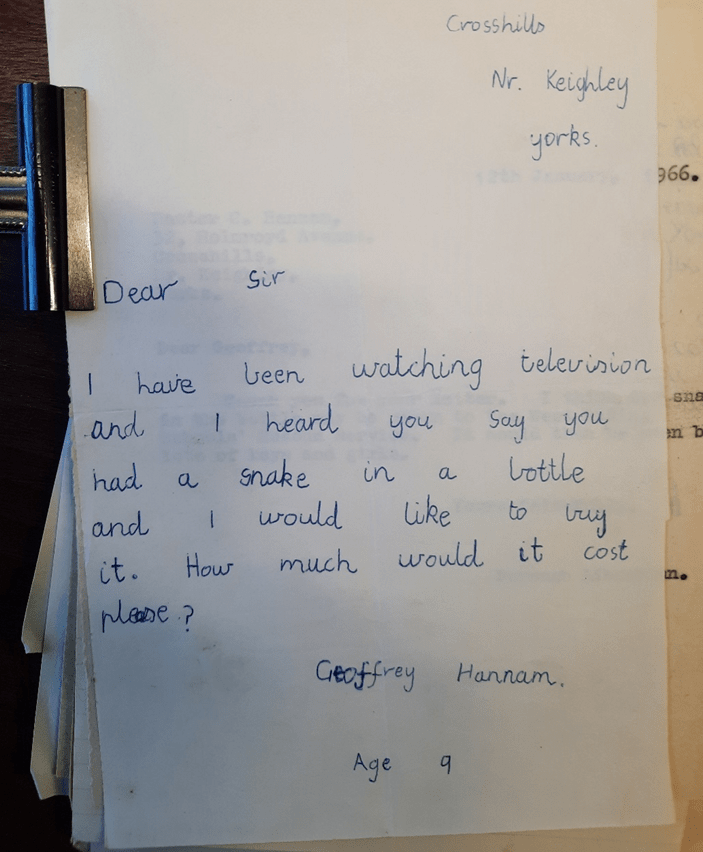 Crosshills
Nr. Keighley
yorks.
966.
Dear Sir
I have been watching television
and I heard you say you
had a snake in a bottle
and I would like to buy
it. How much would it cost
please?
Geoffrey Hannam.
Age 9
sna
n b
n.